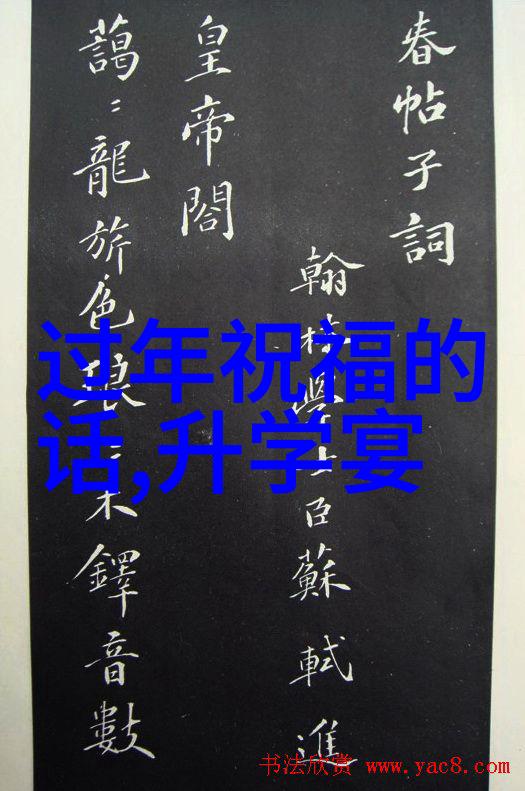 春帖子詞
翰林學士臣蘇軾進
皇帝閤
藹〻龍旂色琅〻木鐸音數
过年祝福的
话,升学宴
书法欣赏 www.yac8.com